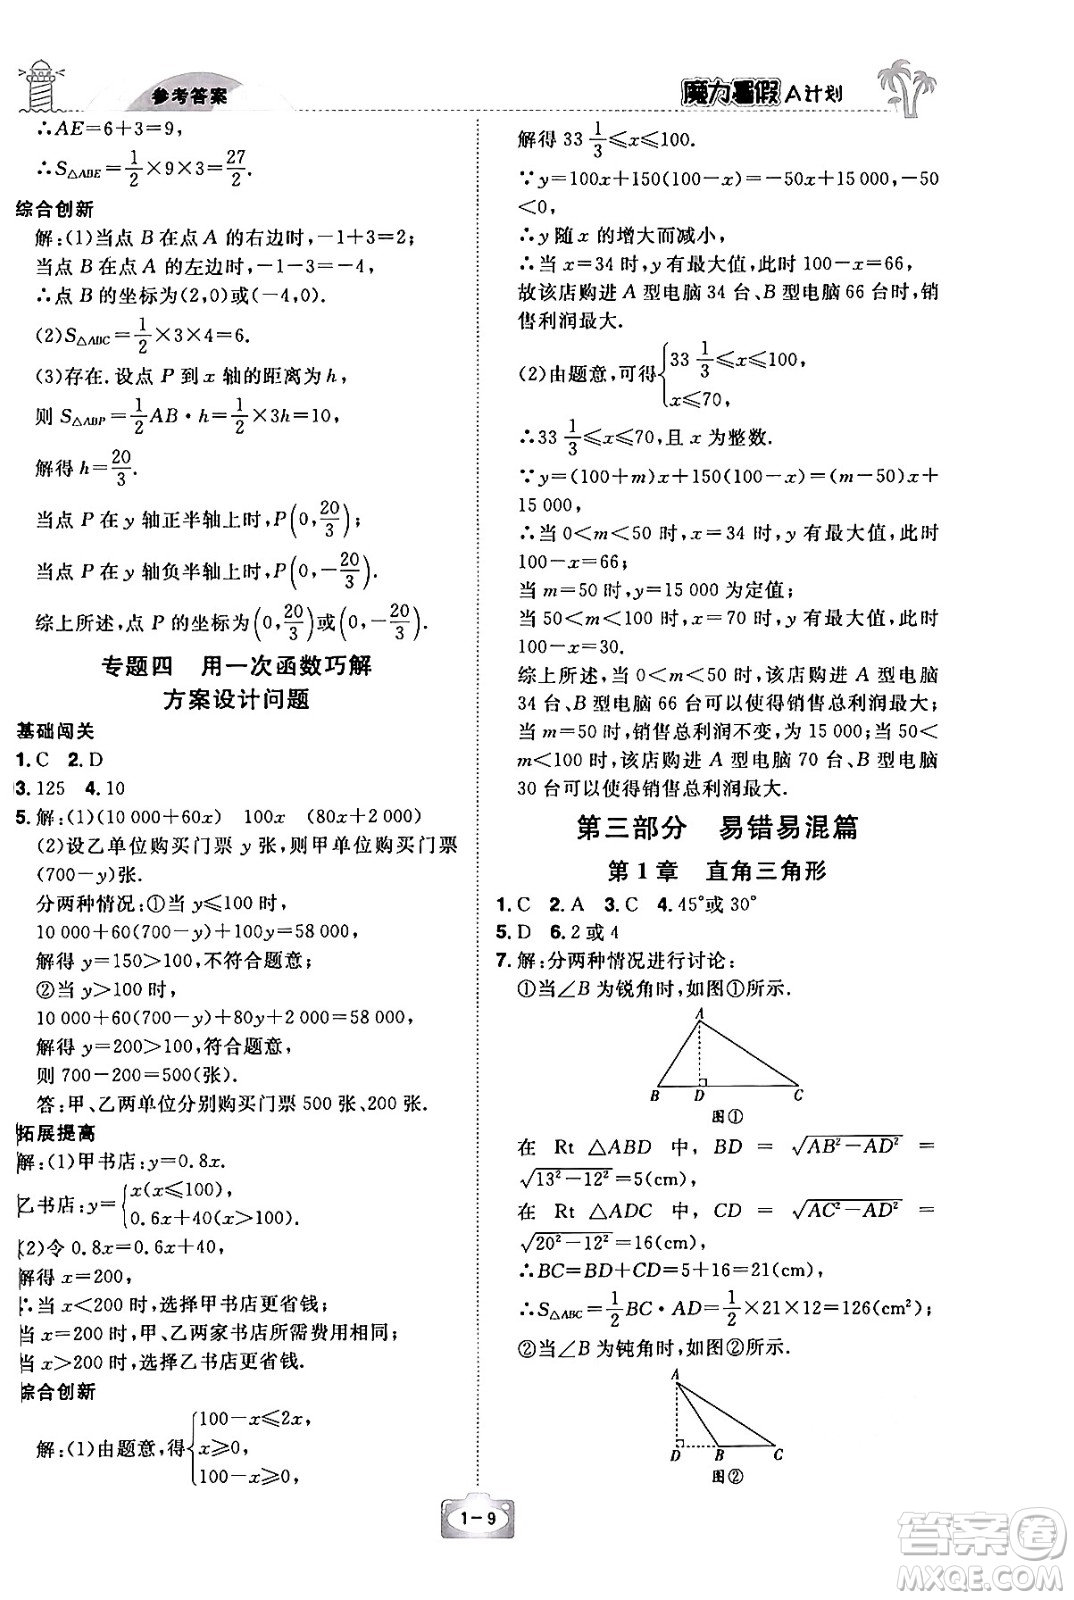 参考答案
魔力暑假 A计划
∴AE=6+3=9,
∴S△ABE=1/2×9×3=27/2.
综合创新
解:(1)当点 B 在点 A 的右边时,-1+3=2;
当点 B 在点 A 的左边时,-1-3=-4,
∴点 B 的坐标为(2,0)或(-4,0).
(2)S△ABC=1/2×3×4=6.
(3)存在.设点 P 到 x 轴的距离为 h,
则 S△ABP=1/2AB·h=1/2×3h=10,
解得 h=20/3.
当点 P 在 y 轴正半轴上时,P(0,20/3);
当点 P 在 y 轴负半轴上时,P(0,-20/3).
综上所述,点 P 的坐标为(0,20/3)或(0,-20/3).
专题四 用一次函数巧解
方案设计问题
基础闯关
1.C 2.D
3.125 4.10
5.解:(1)(10 000+60x) 100x (80x+2 000)
(2)设乙单位购买门票 y 张,则甲单位购买门票
(700-y)张.
分两种情况:①当 y≤100 时,
10 000+60(700-y)+100y=58 000,
解得 y=150>100,不符合题意;
②当 y>100 时,
10 000+60(700-y)+80y+2 000=58 000,
解得 y=200>100,符合题意,
则 700-200=500(张).
答:甲、乙两单位分别购买门票 500 张、200 张.
拓展提高
解:(1)甲书店:y=0.8x.
乙书店:y={x(x≤100),
0.6x+40(x>100).
(2)令 0.8x=0.6x+40,
解得 x=200,
∴当 x<200 时,选择甲书店更省钱;
当 x=200 时,甲、乙两家书店所需费用相同;
当 x>200 时,选择乙书店更省钱.
综合创新
解:(1)由题意,得{100-x≤2x,
x≥0,
100-x≥0,
解得 33 1/3≤x≤100.
∵y=100x+150(100-x)=-50x+15 000,-50
<0,
∴y 随 x 的增大而减小,
∴当 x=34 时,y 有最大值,此时 100-x=66,
故该店购进 A 型电脑 34 台、B 型电脑 66 台时,销
售利润最大.
(2)由题意,可得{33 1/3≤x≤100,
x≤70,
∴33 1/3≤x≤70,且 x 为整数.
∵y=(100+m)x+150(100-x)=(m-50)x+
15 000,
∴当 0<m<50 时,x=34 时,y 有最大值,此时
100-x=66;
当 m=50 时,y=15 000 为定值;
当 50<m<100 时,x=70 时,y 有最大值,此时
100-x=30.
综上所述,当 0<m<50 时,该店购进 A 型电脑
34 台、B 型电脑 66 台可以使得销售总利润最大;
当 m=50 时,销售总利润不变,为 15 000;当 50<
m<100 时,该店购进 A 型电脑 70 台、B 型电脑
30 台可以使得销售总利润最大.
第三部分 易错易混篇
第 1 章 直角三角形
1.C 2.A 3.C 4.45°或 30°
5.D 6.2 或 4
7.解:分两种情况进行讨论:
①当∠B 为锐角时,如图①所示.
A
B D C
图①
在 Rt △ABD 中, BD = √(AB²-AD²) =
√(13²-12²)=5(cm),
在 Rt △ADC 中, CD = √(AC²-AD²) =
√(20²-12²)=16(cm),
∴BC=BD+CD=5+16=21(cm),
∴S△ABC=1/2BC·AD=1/2×21×12=126(cm²);
②当∠B 为钝角时,如图②所示.
A
D B C
图②
1-9
答案圈
MXQE.COM